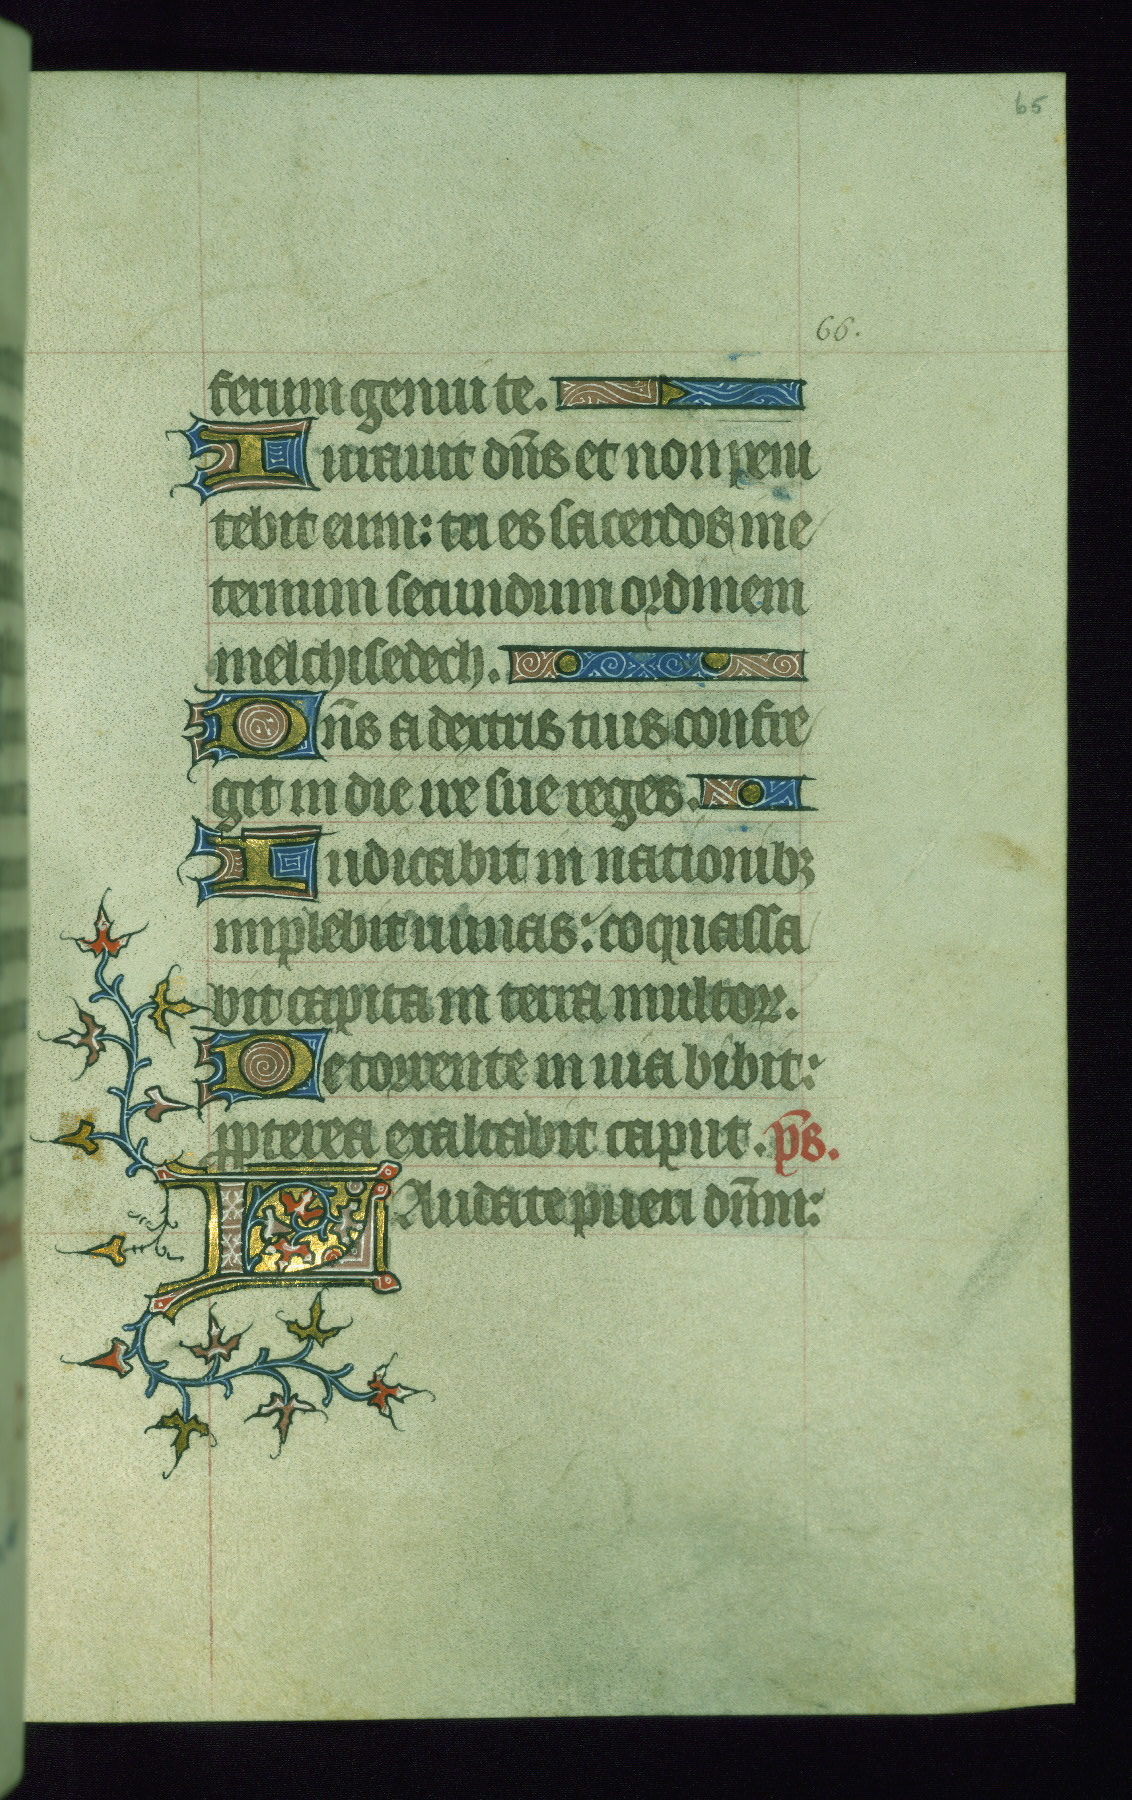 65
66.
ferum genui te.
Iurauit dn̄s et non peni
tebit eum: tu es sacerdos ine
ternum secundum ordinem
melchisedech.
Dn̄s a dextris tuis confre
git in die ire sue reges.
Iudicabit in nationibꝫ
implebit ruinas: co̅quassa
bit capita in terra multoꝝ.
De torrente in uia bibit:
ꝓpterea exaltabit caput. ps̄.
Laudate pueri dn̄m: